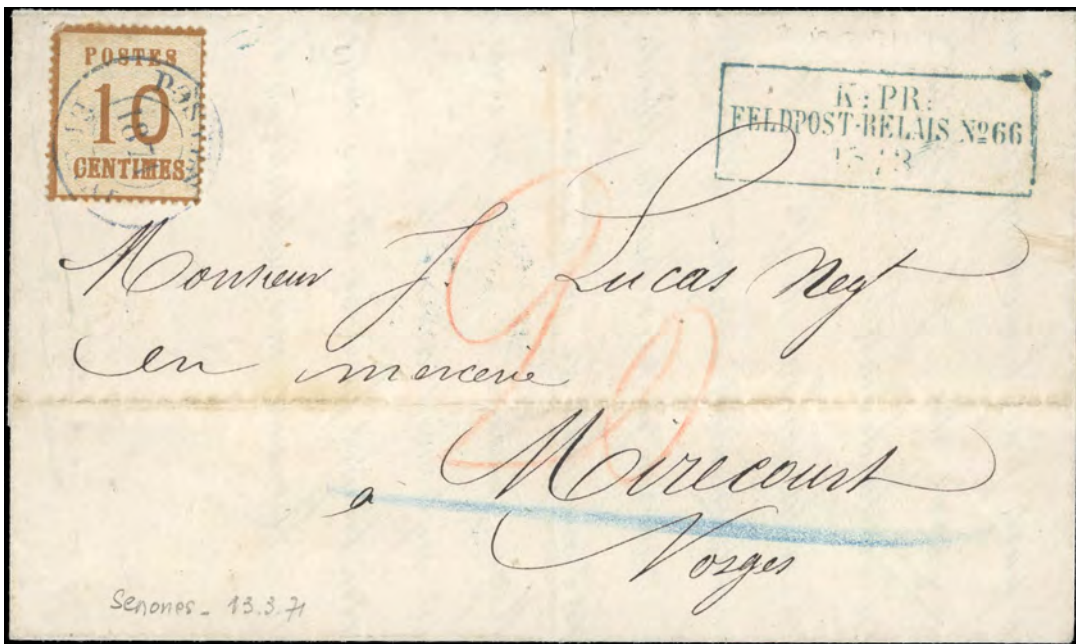 POSTES
10
CENTIMES
K: PR:
FELDPOST-RELAIS No 66
20
Monsieur J. Lucas Negt
en mercerie
à Mirecourt
Vosges
Senones - 13.3.71